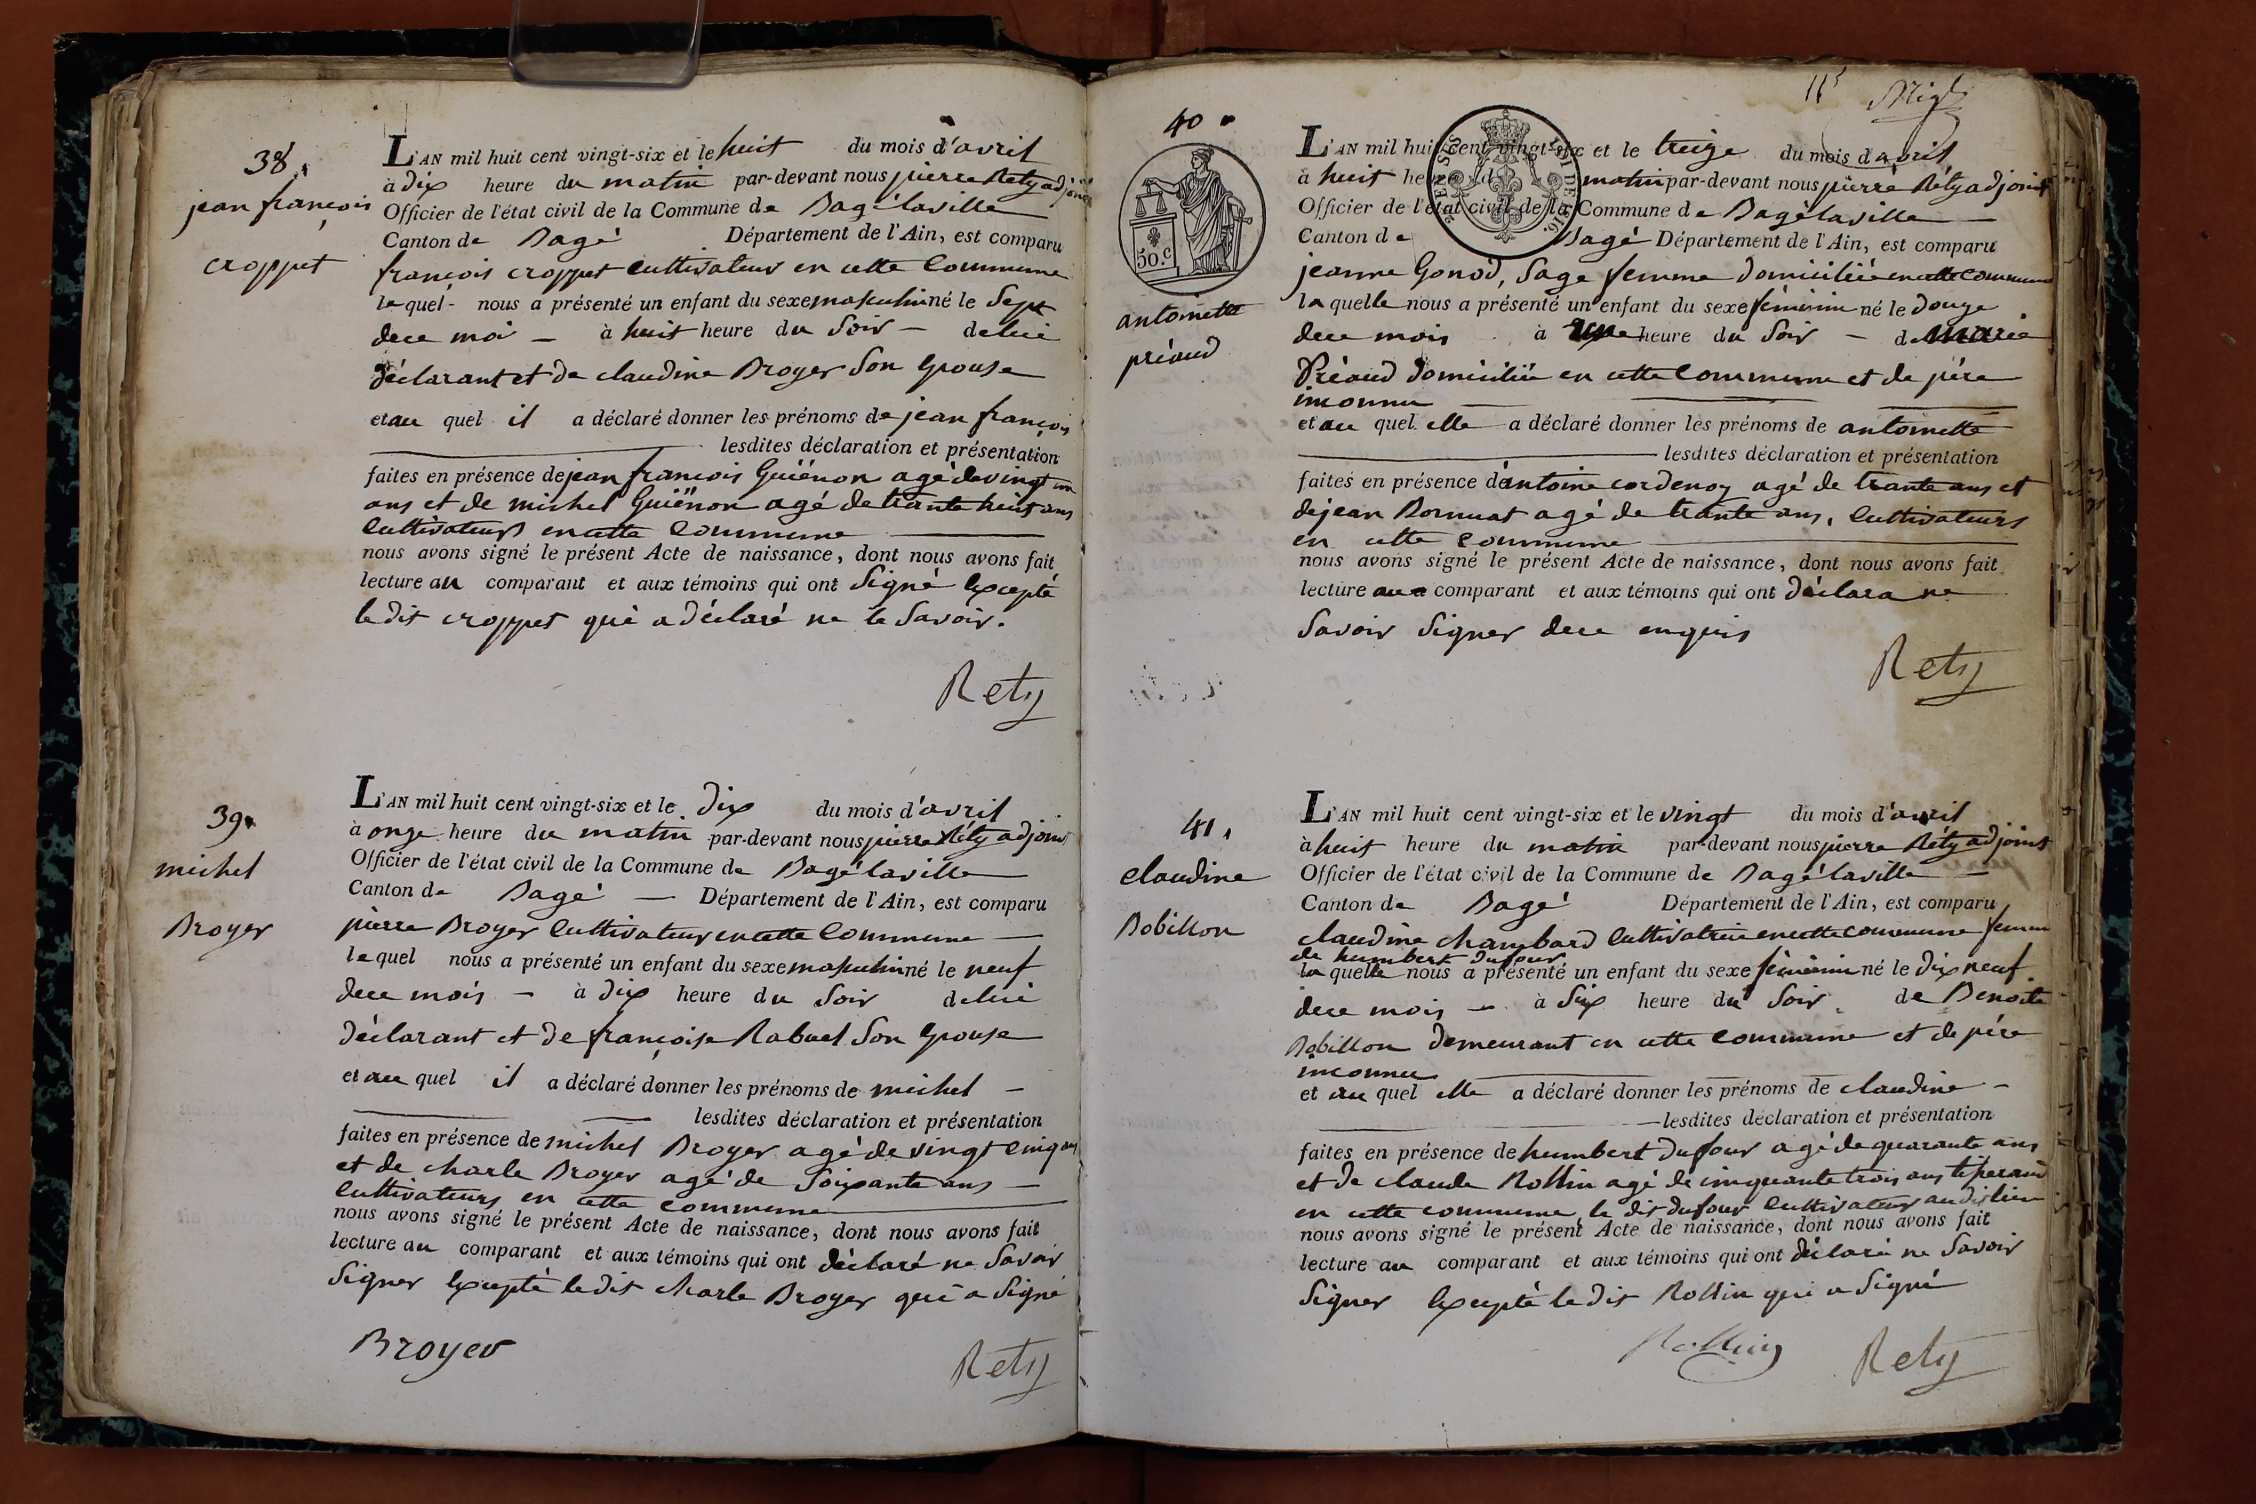 38.
jean françois
croppet
L'AN mil huit cent vingt-six et le huit du mois d'avril
à dix heure du matin par-devant nous pierre Réty adjoint
Officier de l'état civil de la Commune de Bagé laville
Canton de Bagé Département de l'Ain, est comparu
françois croppet Cultivateur en cette Commune
lequel nous a présenté un enfant du sexe masculin né le Sept
dece moi à huit heure du Soir de lui
déclarant et de claudine Broyer Son Epouse
et au quel il a déclaré donner les prénoms de jean françois
lesdites déclaration et présentation
faites en présence de jean francois Guiénon agé de vingt un
ans et de michel Guiénon agé de trante huit ans
Cultivateurs en cette Commune
nous avons signé le présent Acte de naissance, dont nous avons fait
lecture au comparant et aux témoins qui ont Signé Excepté
le dit croppet qui a déclaré ne le Savoir.
Rety
39.
michel
Broyer
L'AN mil huit cent vingt-six et le dix du mois d'avril
à onze heure du matin par-devant nous pierre Réty adjoint
Officier de l'état civil de la Commune de Bagé laville
Canton de Bagé Département de l'Ain, est comparu
pierre Broyer Cultivateur en cette Commune
lequel nous a présenté un enfant du sexe masculin né le neuf
dece mois à dix heure du Soir de lui
déclarant et de françoise Rabuel Son Epouse
et au quel il a déclaré donner les prénoms de michel
lesdites déclaration et présentation
faites en présence de michel Broyer agé de vingt Cinq ans
et de charle Broyer agé de Soixante ans
Cultivateurs en cette Commune
nous avons signé le présent Acte de naissance, dont nous avons fait
lecture au comparant et aux témoins qui ont déclaré ne Savoir
Signer Excepté le dit charle Broyer qui a Signé
Broyer
Rety
115
40
50.c
antoinette
préaud
L'AN mil huit cent vingt-six et le treize du mois d'avril
à huit heure du matin par-devant nous pierre Réty adjoint
Officier de l'état civil de la Commune de Bagé laville
Canton de Bagé Département de l'Ain, est comparu
jeanne Gonod, Sage femme domiciliée en cette commune
la quelle nous a présenté un enfant du sexe féminin né le douze
dece mois à une heure du Soir de marie
Préaud domiciliée en cette Commune et de père
inconnu
et au quel elle a déclaré donner les prénoms de antoinette
lesdites déclaration et présentation
faites en présence de antoine cordenoy agé de trante ans et
de jean Bornuat agé de trante ans, Cultivateurs
en cette Commune
nous avons signé le présent Acte de naissance, dont nous avons fait
lecture au comparant et aux témoins qui ont déclara ne
Savoir Signer dece enquis
Rety
41.
claudine
Bobillon
L'AN mil huit cent vingt-six et le vingt du mois d'avril
à huit heure du matin par-devant nous pierre Réty adjoint
Officier de l'état civil de la Commune de Bagé laville
Canton de Bagé Département de l'Ain, est comparu
claudine chambard Cultivatrice en cette commune femme
de humbert dufour
la quelle nous a présenté un enfant du sexe féminin né le dix neuf
dece mois à Six heure du Soir de Benoite
Bobillon demeurant en cette Commune et de père
inconnu
et au quel elle a déclaré donner les prénoms de claudine
lesdites déclaration et présentation
faites en présence de humbert dufour agé de quarante ans
et de claude Rollin agé de cinquante trois ans tiserand
en cette commune, le dit dufour Cultivateur au dit lieu
nous avons signé le présent Acte de naissance, dont nous avons fait
lecture au comparant et aux témoins qui ont déclaré ne Savoir
Signer Excepté le dit Rollin qui a Signé
Rollin
Rety